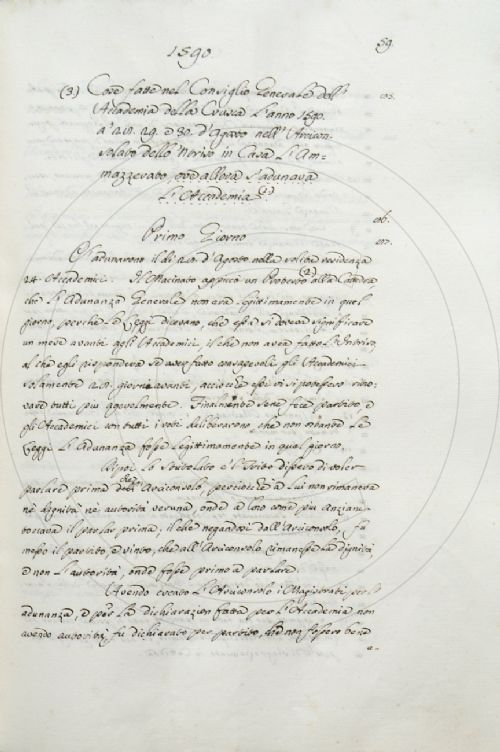 59.
1590.
(3) Cose fatte nel Consiglio Generale dell'
Accademia della Crusca l'anno 1590.
a' 28. 29. e 30. d'Agosto nell'Arcicon-
solato dello Norito in Casa l'Am-
mazzerato, ove allora s'adunava
l'Accademia
Primo Giorno
S'adunarono il dì 28. d'Agosto nella solita residenza
24. Accademici. Il Macinato appiccò un Protesto alla Cattedra
che l'Adunanza Generale non era legittimamente in quel
giorno, perchè le Leggi dicevano, che essa si doveva significare
un mese avanti agli Accademici, il che non avea fatto
al che egli rispondeva se aver fatto consapevoli gli Accademici
solamente 28. giorni avanti, acciocchè essi vi si potessero ritro-
vare tutti più agevolmente. Finalmente sene fece partito e
gli Accademici con tutti i voti deliberarono, che non ostante le
Leggi l'Adunanza fosse legittimamente in quel giorno.
Dipoi lo e l' dissero di voler
parlare prima dell'Arciconsolo, perciocchè a lui non rimaneva
nè dignità nè autorità veruna, onde a loro come più anziani
toccava il parlar prima; il che negandosi dall'Arciconsolo, fu
messo il partito, e vinto, che all'Arciconsolo rimanesse la dignità
e non l'autorità, onde fosse primo a parlare.
Avendo creato l'Arciconsolo i Magistrati per l'
adunanza, e per la dichiarazion fatta per l'Accademia non
avendo autorità, fu dichiarato per partito, che non fossero bene